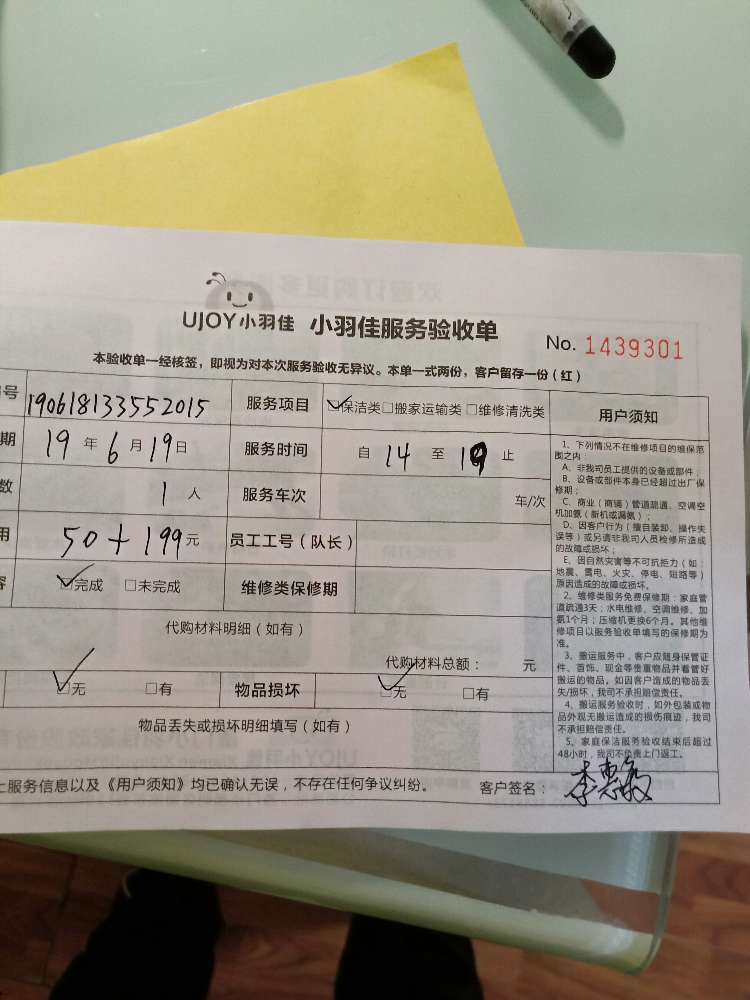 UJOY小羽佳 小羽佳服务验收单
No. 1439301
本验收单一经核签，即视为对本次服务验收无异议。本单一式两份，客户留存一份（红）
号 190618133552015 服务项目 ☑保洁类□搬家运输类□维修清洗类
期 19 年 6 月 19 日 服务时间 自 14 至 止
数 1 人 服务车次 车/次
用 50+199元 员工工号（队长）
容 ☑完成 □未完成 维修类保修期
代购材料明细（如有）
代购材料总额： 元
☑无 □有 物品损坏 ☑无 □有
物品丢失或损坏明细填写（如有）
上服务信息以及《用户须知》均已确认无误，不存在任何争议纠纷。 客户签名：李惠敏
用户须知
1、下列情况不在维修项目的维保范
围之内：
A、非我司员工提供的设备或部件；
B、设备或部件本身已经超过出厂保
修期；
C、商业（商铺）管道疏通、空调空
机加氨（新机或漏氨）；
D、因客户行为（擅自装卸、操作失
误等）或另请非我司人员检修所造成
的故障或损坏；
E、因自然灾害等不可抗拒力（如：
地震、雷电、火灾、停电、短路等）
原因造成的故障或损坏。
2、维修类服务免费保修期：家庭管
道疏通3天；水电维修、空调维修、加
氨1个月；压缩机更换6个月。其他维
修项目以服务验收单填写的保修期为
准。
3、搬运服务中，客户应随身保管证
件、首饰、现金等贵重物品并看管好
搬运的物品。如因客户造成的物品丢
失/损坏，我司不承担赔偿责任。
4、搬运服务验收时，如外包装或物
品外观无搬运造成的损伤痕迹，我司
不承担赔偿责任。
5、家庭保洁服务验收结束后超过
48小时，我司不负责上门返工。